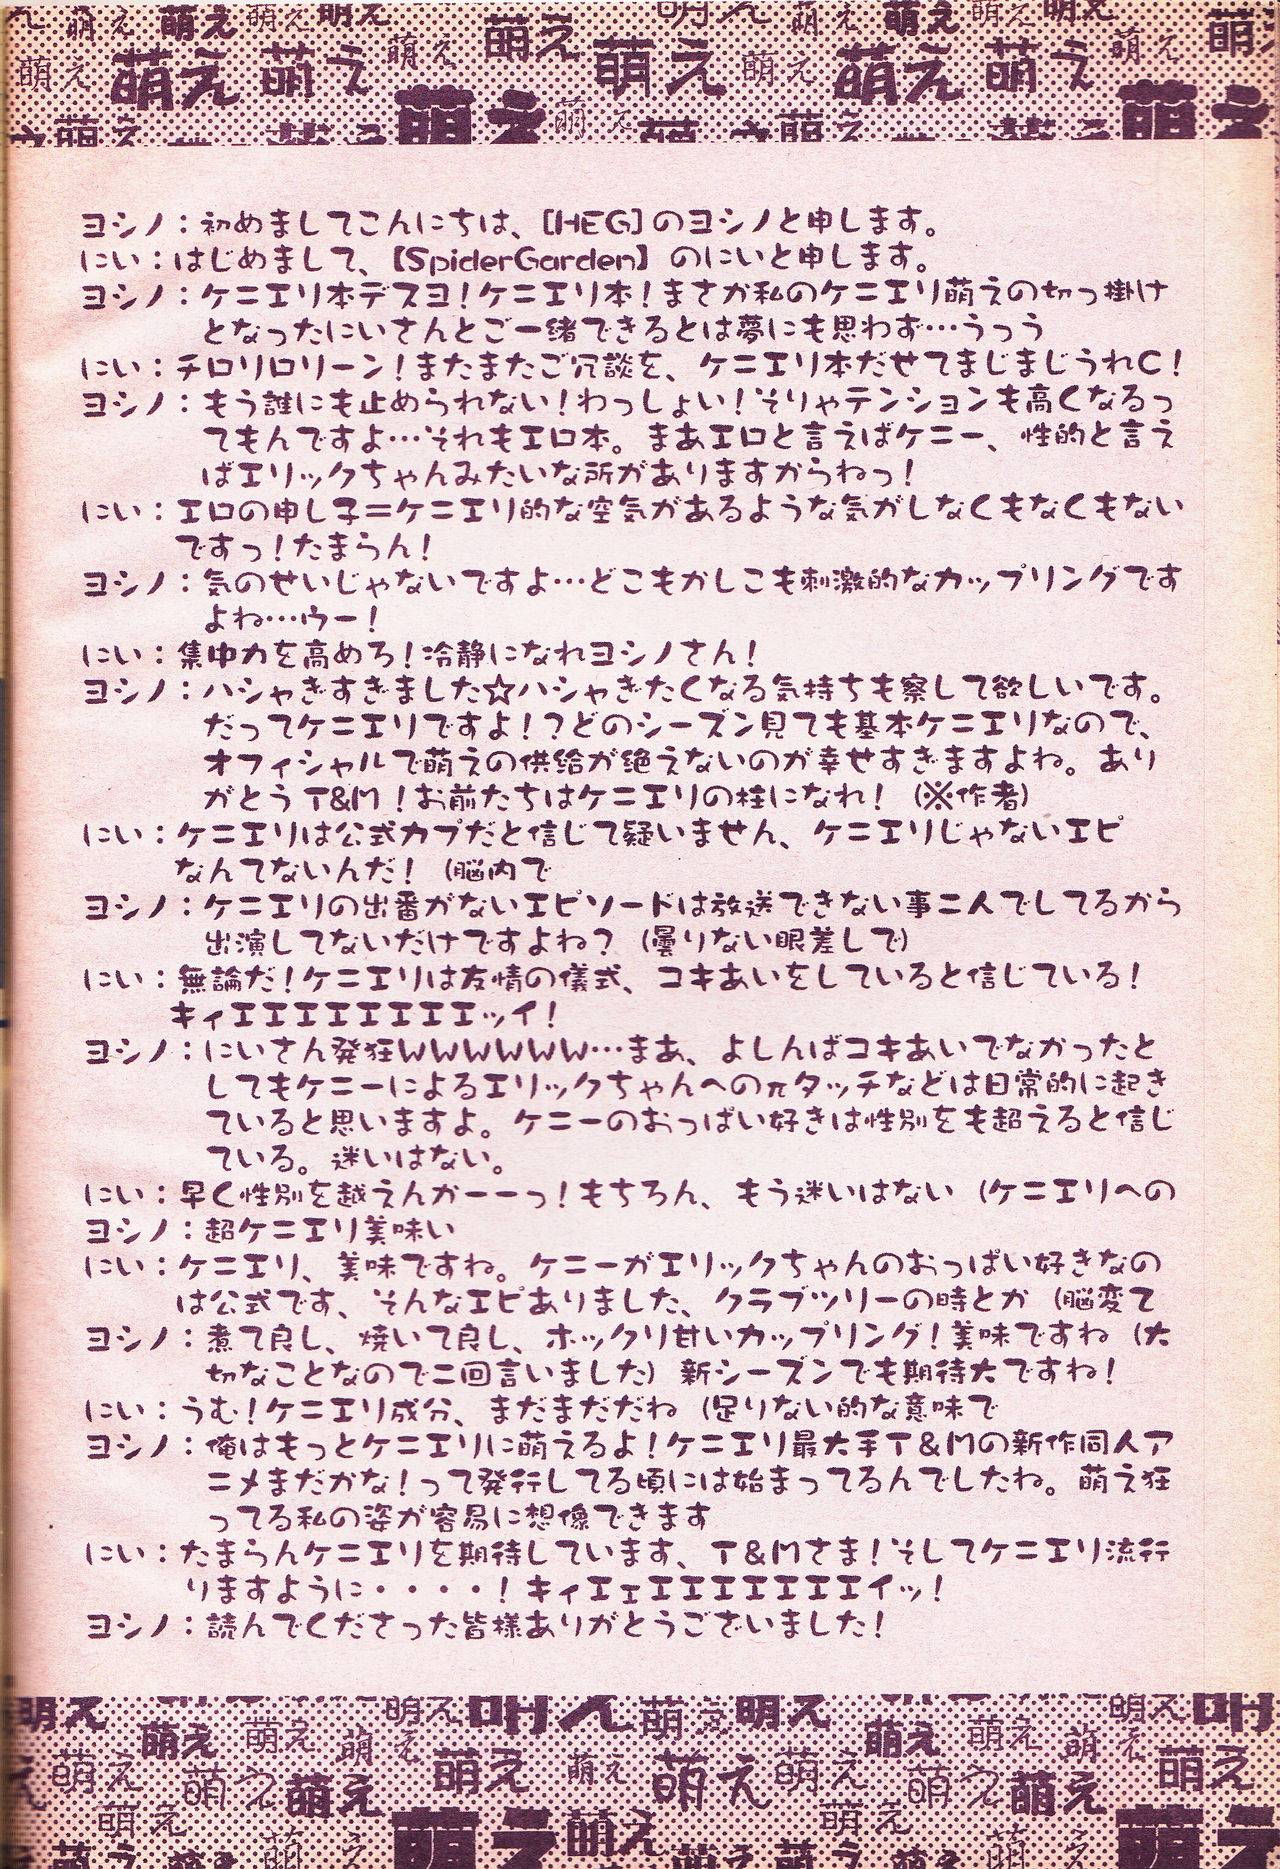 ヨシノ：初めましてこんにちは、[HEG]のヨシノと申します。
にい：はじめまして、【SpiderGarden】のにいと申します。
ヨシノ：ケニエリ本デスヨ！ケニエリ本！まさか私のケニエリ萌えの切っ掛け
となったにいさんとご一緒できるとは夢にも思わず…うっう
にい：チロリロリーン！またまたご冗談を、ケニエリ本だせてまじまじうれC！
ヨシノ：もう誰にも止められない！わっしょい！そりゃテンションも高くなるっ
てもんですよ…それもエロ本。まあエロと言えばケニー、性的と言え
ばエリックちゃんみたいな所がありますからねっ！
にい：エロの申し子＝ケニエリ的な空気があるような気がしなくもなくもない
ですっ！たまらん！
ヨシノ：気のせいじゃないですよ…どこもかしこも刺激的なカップリングです
よね…ウー！
にい：集中力を高めろ！冷静になれヨシノさん！
ヨシノ：ハシャぎすぎました☆ハシャぎたくなる気持ちも察して欲しいです。
だってケニエリですよ！？どのシーズン見ても基本ケニエリなので、
オフィシャルで萌えの供給が絶えないのが幸せすぎますよね。あり
がとうT&M！お前たちはケニエリの柱になれ！（※作者）
にい：ケニエリは公式カプだと信じて疑いません、ケニエリじゃないエピ
なんてないんだ！（脳内で
ヨシノ：ケニエリの出番がないエピソードは放送できない事二人でしてるから
出演してないだけですよね？（曇りない眼差しで）
にい：無論だ！ケニエリは友情の儀式、コキあいをしていると信じている！
キィエエエエエエエエッイ！
ヨシノ：にいさん発狂WWWWWW…まあ、よしんばコキあいでなかったと
してもケニーによるエリックちゃんへのπタッチなどは日常的に起き
ていると思いますよ。ケニーのおっぱい好きは性別をも超えると信じ
ている。迷いはない。
にい：早く性別を越えんかーーっ！もちろん、もう迷いはない（ケニエリへの
ヨシノ：超ケニエリ美味い
にい：ケニエリ、美味ですね。ケニーがエリックちゃんのおっぱい好きなの
は公式です、そんなエピありました、クラブツリーの時とか（脳変て
ヨシノ：煮て良し、焼いて良し、ホックリ甘いカップリング！美味ですね（大
切なことなので二回言いました）新シーズンでも期待大ですね！
にい：うむ！ケニエリ成分、まだまだだね（足りない的な意味で
ヨシノ：俺はもっとケニエリに萌えるよ！ケニエリ最大手T&Mの新作同人ア
ニメまだかな！って発行してる頃には始まってるんでしたね。萌え狂
ってる私の姿が容易に想像できます
にい：たまらんケニエリを期待しています、T&Mさま！そしてケニエリ流行
りますように・・・・！キィエェエエエエエエエイッ！
ヨシノ：読んでくださった皆様ありがとうございました！